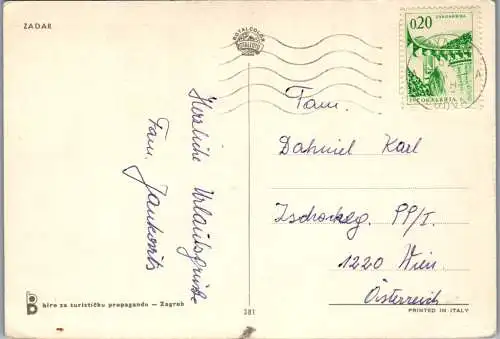 ZADAR
ROTALCOLOR
0,20
JUGOSLAVIJA
Herzliche Urlaubsgrüße
Fam. Jankovits
Fam.
Dahniel Karl
Tschockeg. PP/I.
1220 Wien
Österreich
biro za turističku propagandu — Zagreb
381
PRINTED IN ITALY